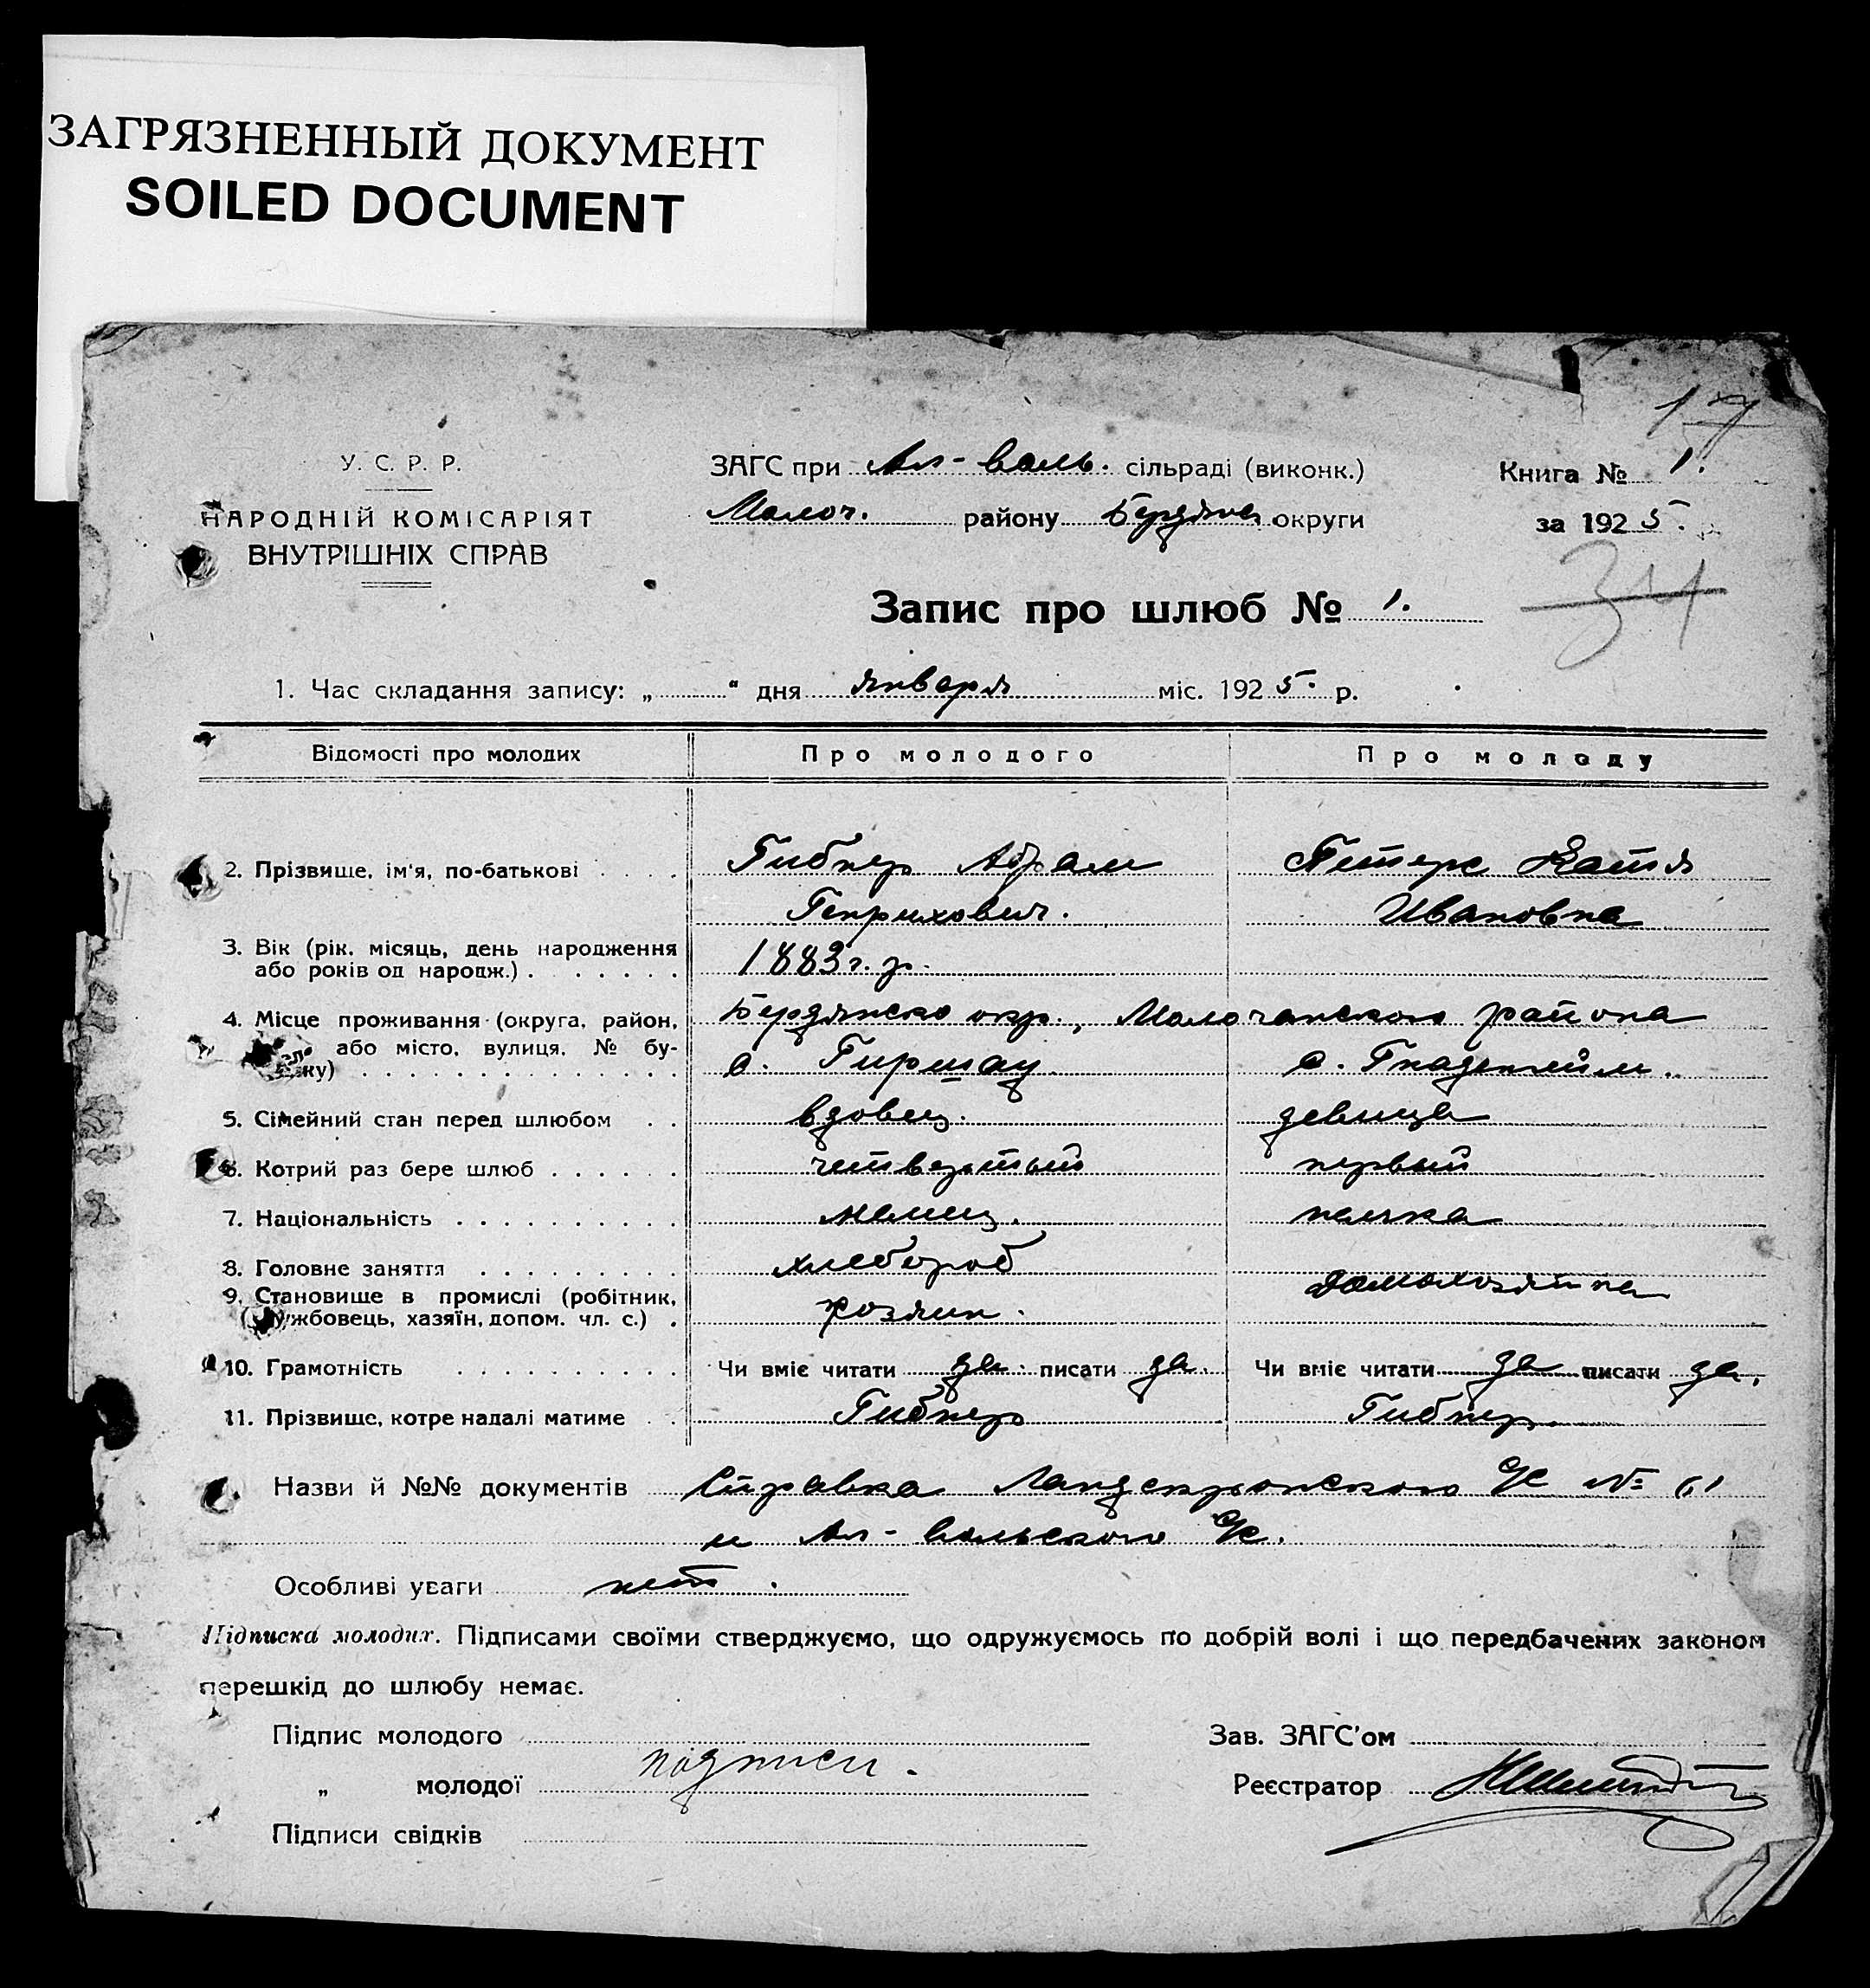 ЗАГРЯЗНЕННЫЙ ДОКУМЕНТ
SOILED DOCUMENT
17
У. С. Р. Р.
НАРОДНІЙ КОМІСАРІЯТ
ВНУТРІШНІХ СПРАВ
ЗАГС при Ал-валь. сільраді (виконк.)
Молоч. району Бердянс. округи
Книга № 1.
за 1925.
34
Запис про шлюб № 1.
1. Час складання запису: „ “ дня января міс. 1925. р.
Відомості про молодих Про молодого Про молоду
2. Прізвище, ім'я, по-батькові . . . . Гибнер Абрам Петерс Катя
Генрихович. Ивановна
3. Вік (рік, місяць, день народження
або років од народж.) . . . . . . . 1883 г. р.
4. Місце проживання (округа, район, Бердянско окр., Молочанского района
або місто, вулиця, № бу-
ку) . . . . . . . . . . . . . . . с. Гиршау с. Гнаденгейм.
5. Сімейний стан перед шлюбом . . вдовец. девица
6. Котрий раз бере шлюб . . . . . . четвертый первый
7. Національність . . . . . . . . . . немец. немка
8. Головне заняття . . . . . . . . . хлебороб
9. Становище в промислі (робітник,
ужбовець, хазяїн, допом. чл. с.) . хозяин. домохозяйка
10. Грамотність . . . . . . . . . . Чи вміє читати да. писати да. Чи вміє читати да писати да.
11. Прізвище, котре надалі матиме . . Гибнер Гибнер.
Назви й №№ документів Справка Ландскронского с/с № 61
и Ал-вальского с/с.
Особливі уваги нет.
Підписка молодих. Підписами своїми стверджуємо, що одружуємось по добрій волі і що передбачених законом
перешкід до шлюбу немає.
Підпис молодого
„ молодої подписи.
Підписи свідків
Зав. ЗАГС'ом
Реєстратор